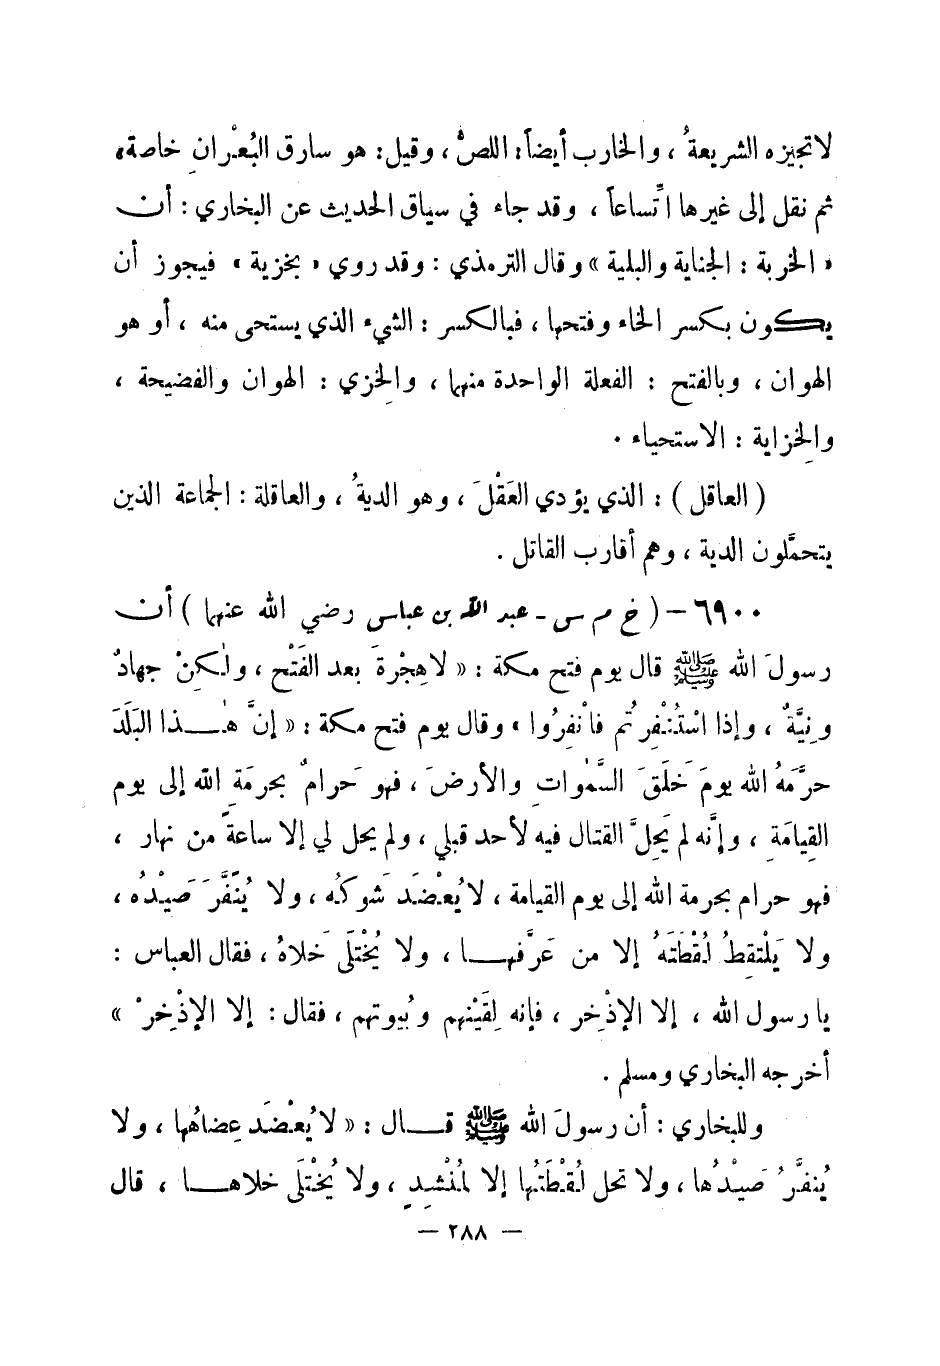 لا تجيزه الشريعةُ ، والخارب أيضاً : اللصُّ ، وقيل : هو سارق البُعْرانِ خاصة ،
ثم نقل إلى غيرها اتِّساعاً ، وقد جاء في سياق الحديث عن البخاري : أن
« الخربة : الجناية والبلية » وقال الترمذي : وقد روي « بخزية » فيجوز أن
يكون بكسر الخاء وفتحها ، فبالكسر : الشيء الذي يستحى منه ، أو هو
الهوان ، وبالفتح : الفعلة الواحدة منهما ، والخِزي : الهوان والفضيحة ،
والخِزاية : الاستحياء .
( العاقل ) : الذي يؤدي العَقْلَ ، وهو الديةُ ، والعاقلة : الجماعة الذين
يتحمَّلون الدية ، وهم أقارب القاتل .
٦٩٠٠ – ( خ م س - عبد الله بن عباس رضي الله عنهما ) أن
رسولَ الله ﷺ قال يوم فتح مكة : « لا هِجْرةَ بعد الفَتْح ، ولٰكِنْ جهادٌ
ونِيَّةٌ ، وإذا اسْتُنْفِرتُم فانْفِرُوا » وقال يوم فتح مكة : « إنَّ هٰذا البَلَدَ
حرَّمَهُ الله يومَ خَلَقَ السَّمٰواتِ والأرضَ ، فهو حَرامٌ بحرمَةِ الله إلى يوم
القِيامَةِ ، وإنَّه لم يَحِلَّ القتال فيه لأحد قبلي ، ولم يحل لي إلا ساعةً من نهار ،
فهو حرام بحرمة الله إلى يوم القيامة ، لا يُعْضَد شَوكُه ، ولا يُنَفَّرَ صَيْدُه ،
ولا يَلْتقِطُ لُقْطَتَهُ إلا من عَرَّفها ، ولا يُخْتَلَى خَلاهُ ، فقال العباس :
يا رسول الله ، إلا الإذْخِر ، فإنه لِقَيْنِهم وبُيوتهم ، فقال : إلا الإذْخِرْ »
أخرجه البخاري ومسلم .
وللبخاري : أن رسولَ الله ﷺ قال : « لا يُعْضَد عِضاهُها ، ولا
يُنفَّرُ صَيْدُها ، ولا تحل لُقْطَتُها إلا لمُنْشِدٍ ، ولا يُخْتَلَى خلاها ، قال
— ٢٨٨ —